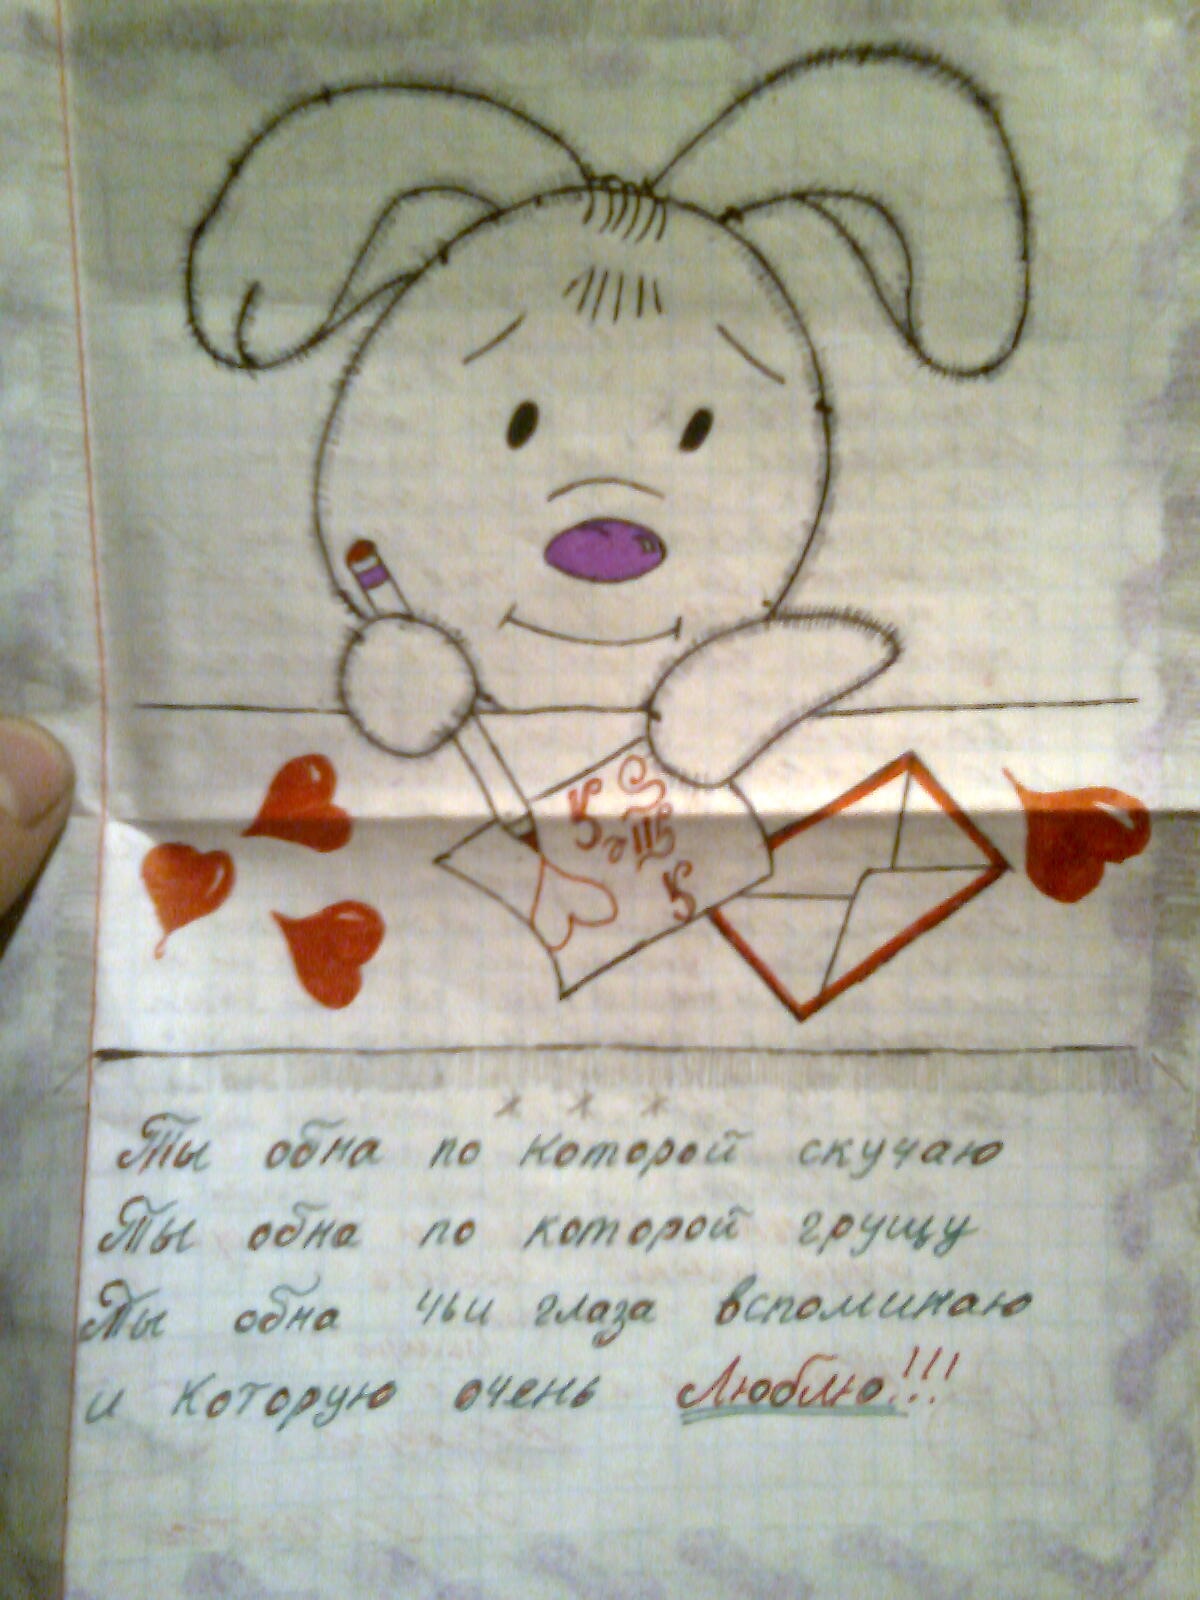 * * *
Ты одна по которой скучаю
Ты одна по которой грущу
Ты одна чьи глаза вспоминаю
и которую очень Люблю!!!